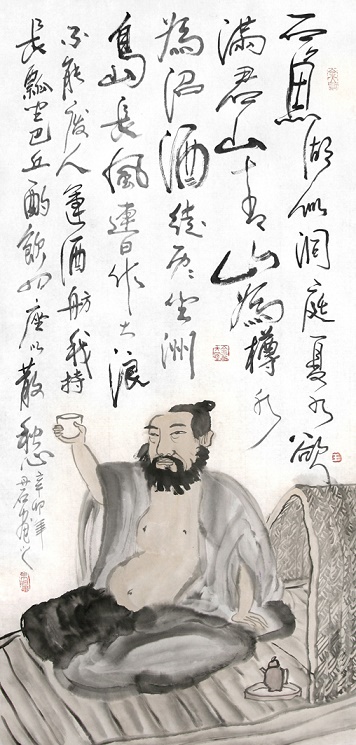 石魚湖似洞庭夏水欲
滿君山青山為樽水
為沼酒徒歷歷坐洲
島長風連日作大浪
不能廢人運酒舫我持
長瓢坐巴丘酌飲四座以散愁
辛卯年